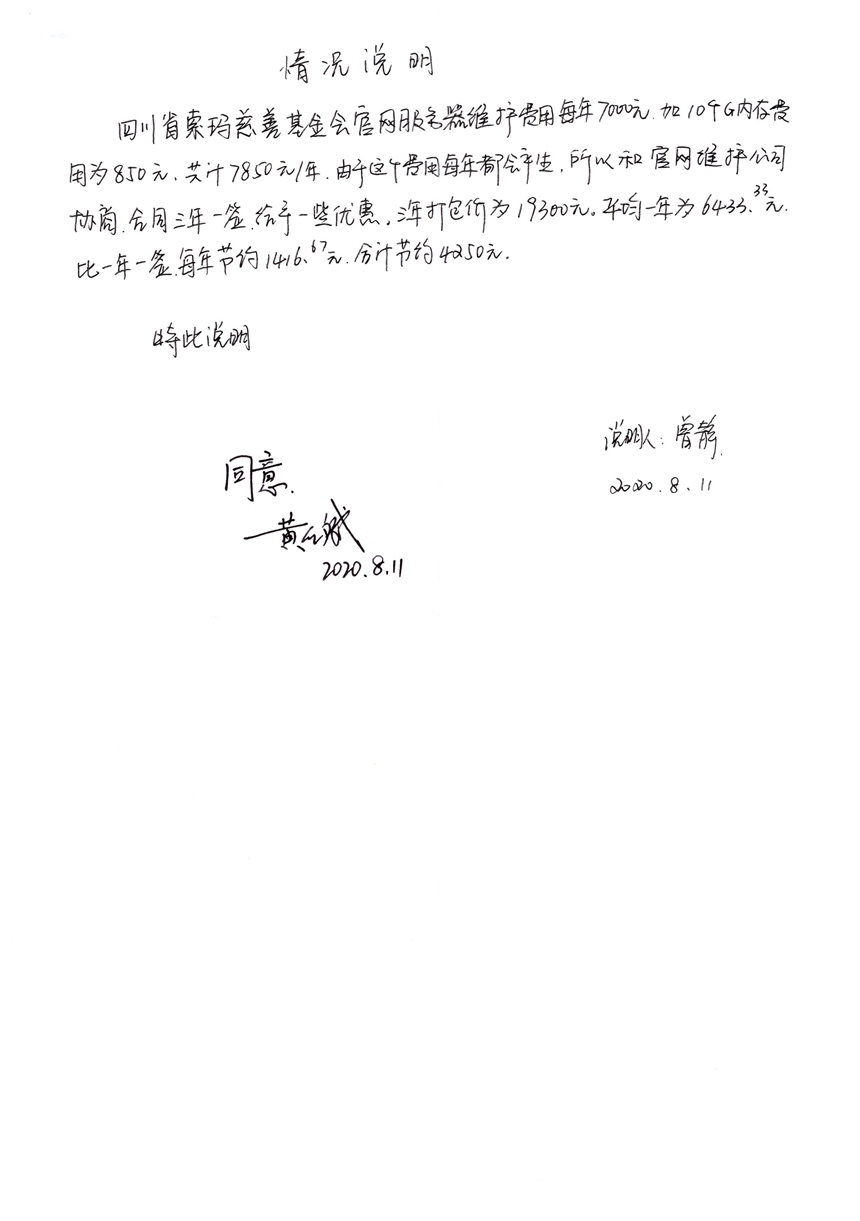 情况说明
四川省索玛慈善基金会官网服务器维护费用每年7000元.加10个G内存费
用为850元、共计7850元/年.由于这个费用每年都会产生,所以和官网维护公司
协商.合同三年一签.给予一些优惠.三年打包价为19300元。平均一年为6433.33元.
比一年一签.每年节约1416.67元.合计节约4250元.
特此说明
说明人:曾静.
2020.8.11
同意.
黄
2020.8.11